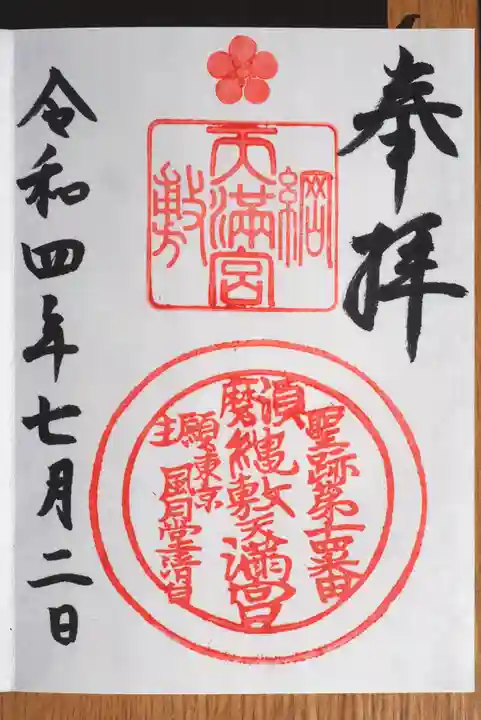 奉拝
綱
天満宮
敷
聖跡第十四番
須
磨縄敷天満宮
願主
東京
風月堂清白
令和四年七月二日